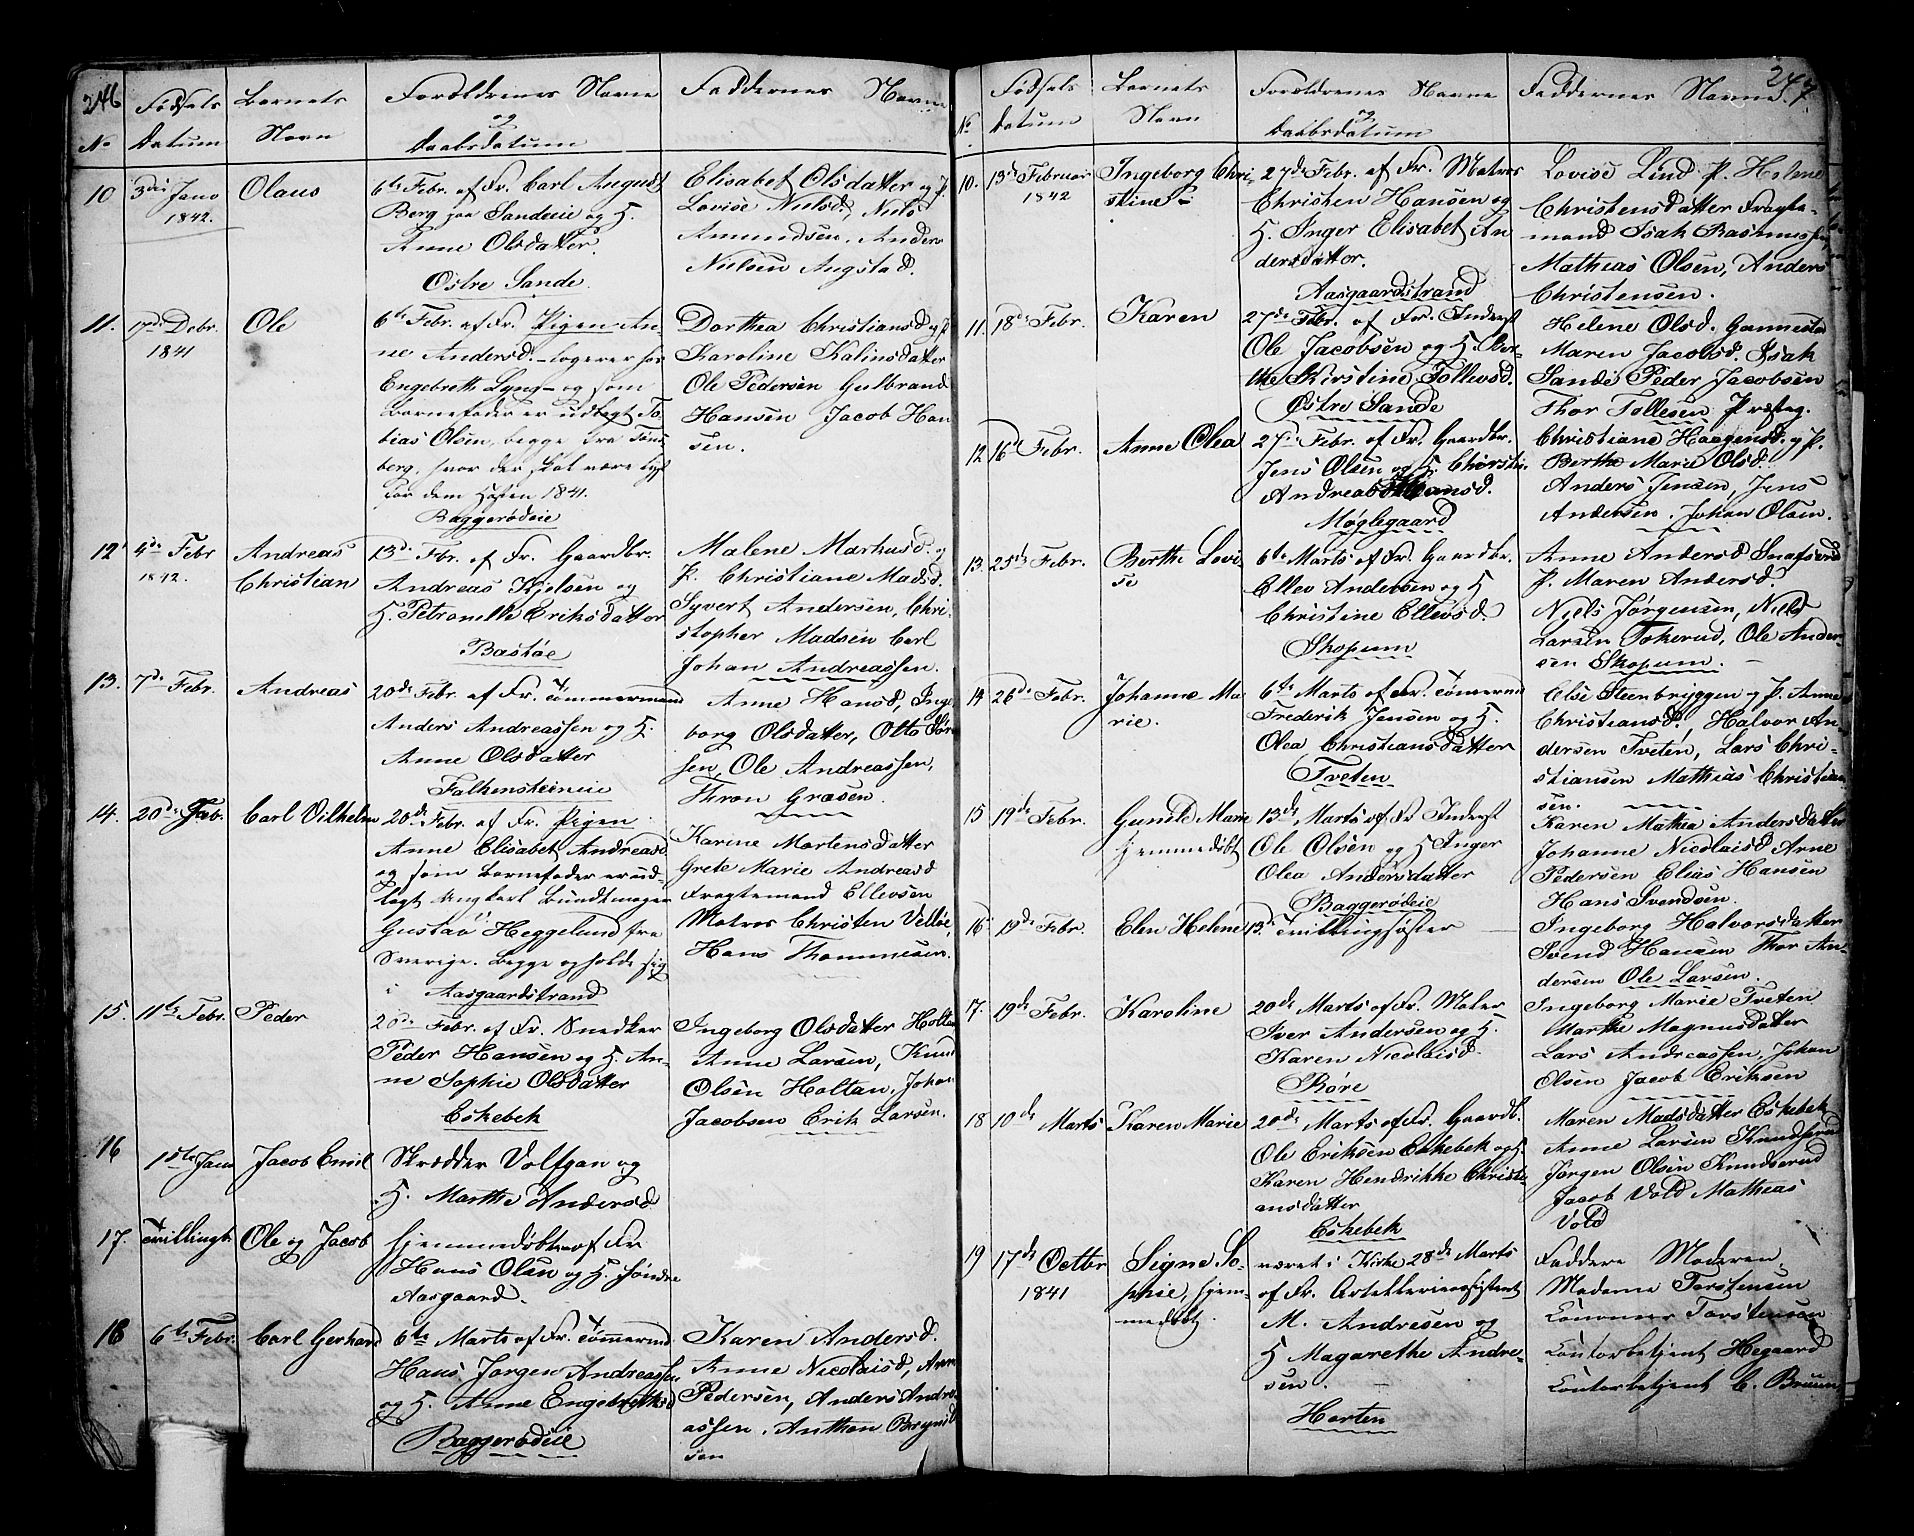 246
No
Fødsels
Datum
Barnets
Navn
Forældrenes Navne
og
Daabsdatum
Faddernes Navne
10
3die Janv
1842.
Olaus
6te Febr. af Fr. Carl August
Berg paa Sandeeie og H.
Anne Olsdatter.
Østre Sande.
Elisabet Olsdatter og P.
Lovise Nielsd, Niels
Amundsen, Anders
Nielsen Augstad.
11.
17de Debr.
1841
Ole
6te Febr. af Fr. Pigen An-
ne Andersd. logerer hos
Engebreth Lyng og som
Barnefader er udlagt To-
bias Olsen, begge fra Tøns-
berg, hvor der skal være lyst
for dem Høsten 1841.
Baggerødeie
Dorthea Christiansd og P
Karoline Kalinsdatter
Ole Pedersen Gulbrand
Hansen Jacob Han
sen.
12
4de Febr
1842.
Andreas
Christian
13de Febr. af Fr. Gaardbr.
Andreas Kjelsen og
H. Petronelle Eriksdatter
Bastøe
Malene Markusd. og
P. Christiane Madsd.
Syvert Andersen, Chri-
stopher Madsen Carl
Johan Andreassen.
13.
7de Febr.
Andreas
20de Febr. af Fr. Tømmermand
Anders Andreassen og H.
Anne Olsdatter
Falkensteineie
Anne Hansd, Inge
borg Olsdatter, Otto
sen, Ole Andreassen,
Thron Græsen.
14.
20de Febr.
Carl Vilhelm
20de Febr. af Fr. Pigen
Anne Elisabet Andreasd
og som Barnefader er ud-
lagt Ungkarl Bundtmager
Gustav Heggelund fra
Sverige. Begge opholde sig
i Aasgaardstrand
Karine Mortensdatter
Grete Marie Andreasd
Fragtemand Ellevsen
Matros Christen Velløe,
Hans Thommesen.
15.
11te Febr.
Peder
20de Febr. af Fr. Snedker
Peder Hansen og H. An-
ne Sophie Olsdatter
Eskebek
Ingeborg Olsdatter Holtan
Anne Larsen, Knud
Olsen Holtan, Johan
Jacobsen Erik Larsen.
16
1ste Janv
Jacob Emil
Skrædder Volfgan og
H. Marthe Andersd
17.
Tvillingb
Ole og Jacob
hjemmedøbte af Fr
Hans Olsen og H. Søndre
Aasgaard.
18
6te Febr.
Carl Gerhard
6te Marts af Fr. Tømermd
Hans Jørgen Andreassen
og H. Anne Engebrethsd
Baggerødeie
Karen Andersd.
Anne Nicolaisd, Arn
Pedersen, Anders Andre-
assen, Anthon Brynild
sen
247
No
Fødsels
Datum
Barnets
Navn
Forældrenes Navne
og
Daabsdatum
Faddernes Navne
10.
13de Februar
1842
Ingeborg Chri-
stine
27de Febr. af Fr. Matros
Christen Hansen og
H. Inger Elisabet An
dersdatter.
Aasgaardstrand
Lovise Lund P. Helene
Christensdatter Fragte-
mand Isak Rasmussen
Mathias Olsen, Anders
Christensen.
11.
18de Febr.
Karen
27de Febr. af Fr. Inderst
Ole Jacobsen og H. Ber-
the Kirstine Tollevsd.
Østre Sande
Helene Olsd. Gannestad
Maren Jacobsd. Isak
Sande Peder Jacobsen
Thor Tollesen Præsteg.
12
16de Febr.
Anne Olea
27de Febr. af Fr. Gaardbr.
Jens Olsen og H. Christi
Andreas Hansd.
Møglegaard
Christiane Haagensd. og P.
Berthe Marie Olsd.
Anders Jensen, Jens
Andersen. Johan Olsen.
13.
25de Febr.
Berthe Lovi
se
6te Marts af Fr. Gaardbr.
Ellev Andersen og H
Christine Ellevsd.
Skopum
Anne Andersd
P. Maren Andersd.
Niels Jørgensen, Niels
Larsen Tokerud, Ole Ander-
sen Skopum.
14
26de Febr.
Johanne Ma-
rie.
6te Marts af Fr. Tømermd
Frederik Jensen og H.
Olea Christiansdatter
Tveten
Else Steenbryggen og P. Anne
Christiansd. Halvor An
dersen Tveten, Lars Chri-
stiansen Mathias Christian
sen.
15
19de Febr.
Gunild Marie
hjemmedøbt
13de Marts af Fr Inderst
Ole Olsen og H Inger
Olea Andersdatter
Baggerødeie
Karen Mathea Andersdatter
Johanne Nicolaisd Arne
Pedersen Elias Hansen
Hans Svendsen.
16
19de Febr.
Elen Helene
13de Tvillingsøster
Ingeborg Halvorsdatter
Svend Hansen Thor An-
dersen Ole Larsen.
17.
19de Febr.
Karoline
20de Marts af Fr. Maler
Iver Andersen og H.
Karen Nicolaisd.
Røre
Ingeborg Marie Tveten
Marthe Magnusdatter
Lars Andreassen, Johan
Olsen Jacob Eriksen
18
10de Marts
Karen Marie
20de Marts af Fr. Gaardb.
Ole Eriksen Eskebek og H.
Karen Hendrikke Christi-
ansdatter
Eskebek
Maren Madsdatter Eskebek
Anne Larsen Knudserud
Jørgen Olsen Knudserud
Jacob Vold Mathias
Vold
19
17de Octbr
1841
Signe So-
phie, hjem-
medøbt
været i Kirke 28de Marts
af Fr. Artilleriassistent
M. Andresen og
H Magarethe Andre-
sen.
Horten
Faddere Moderen,
Madame Torstensen
Torstensen
Contorbetjent Hegaard
Contorbetjent C. Bruun